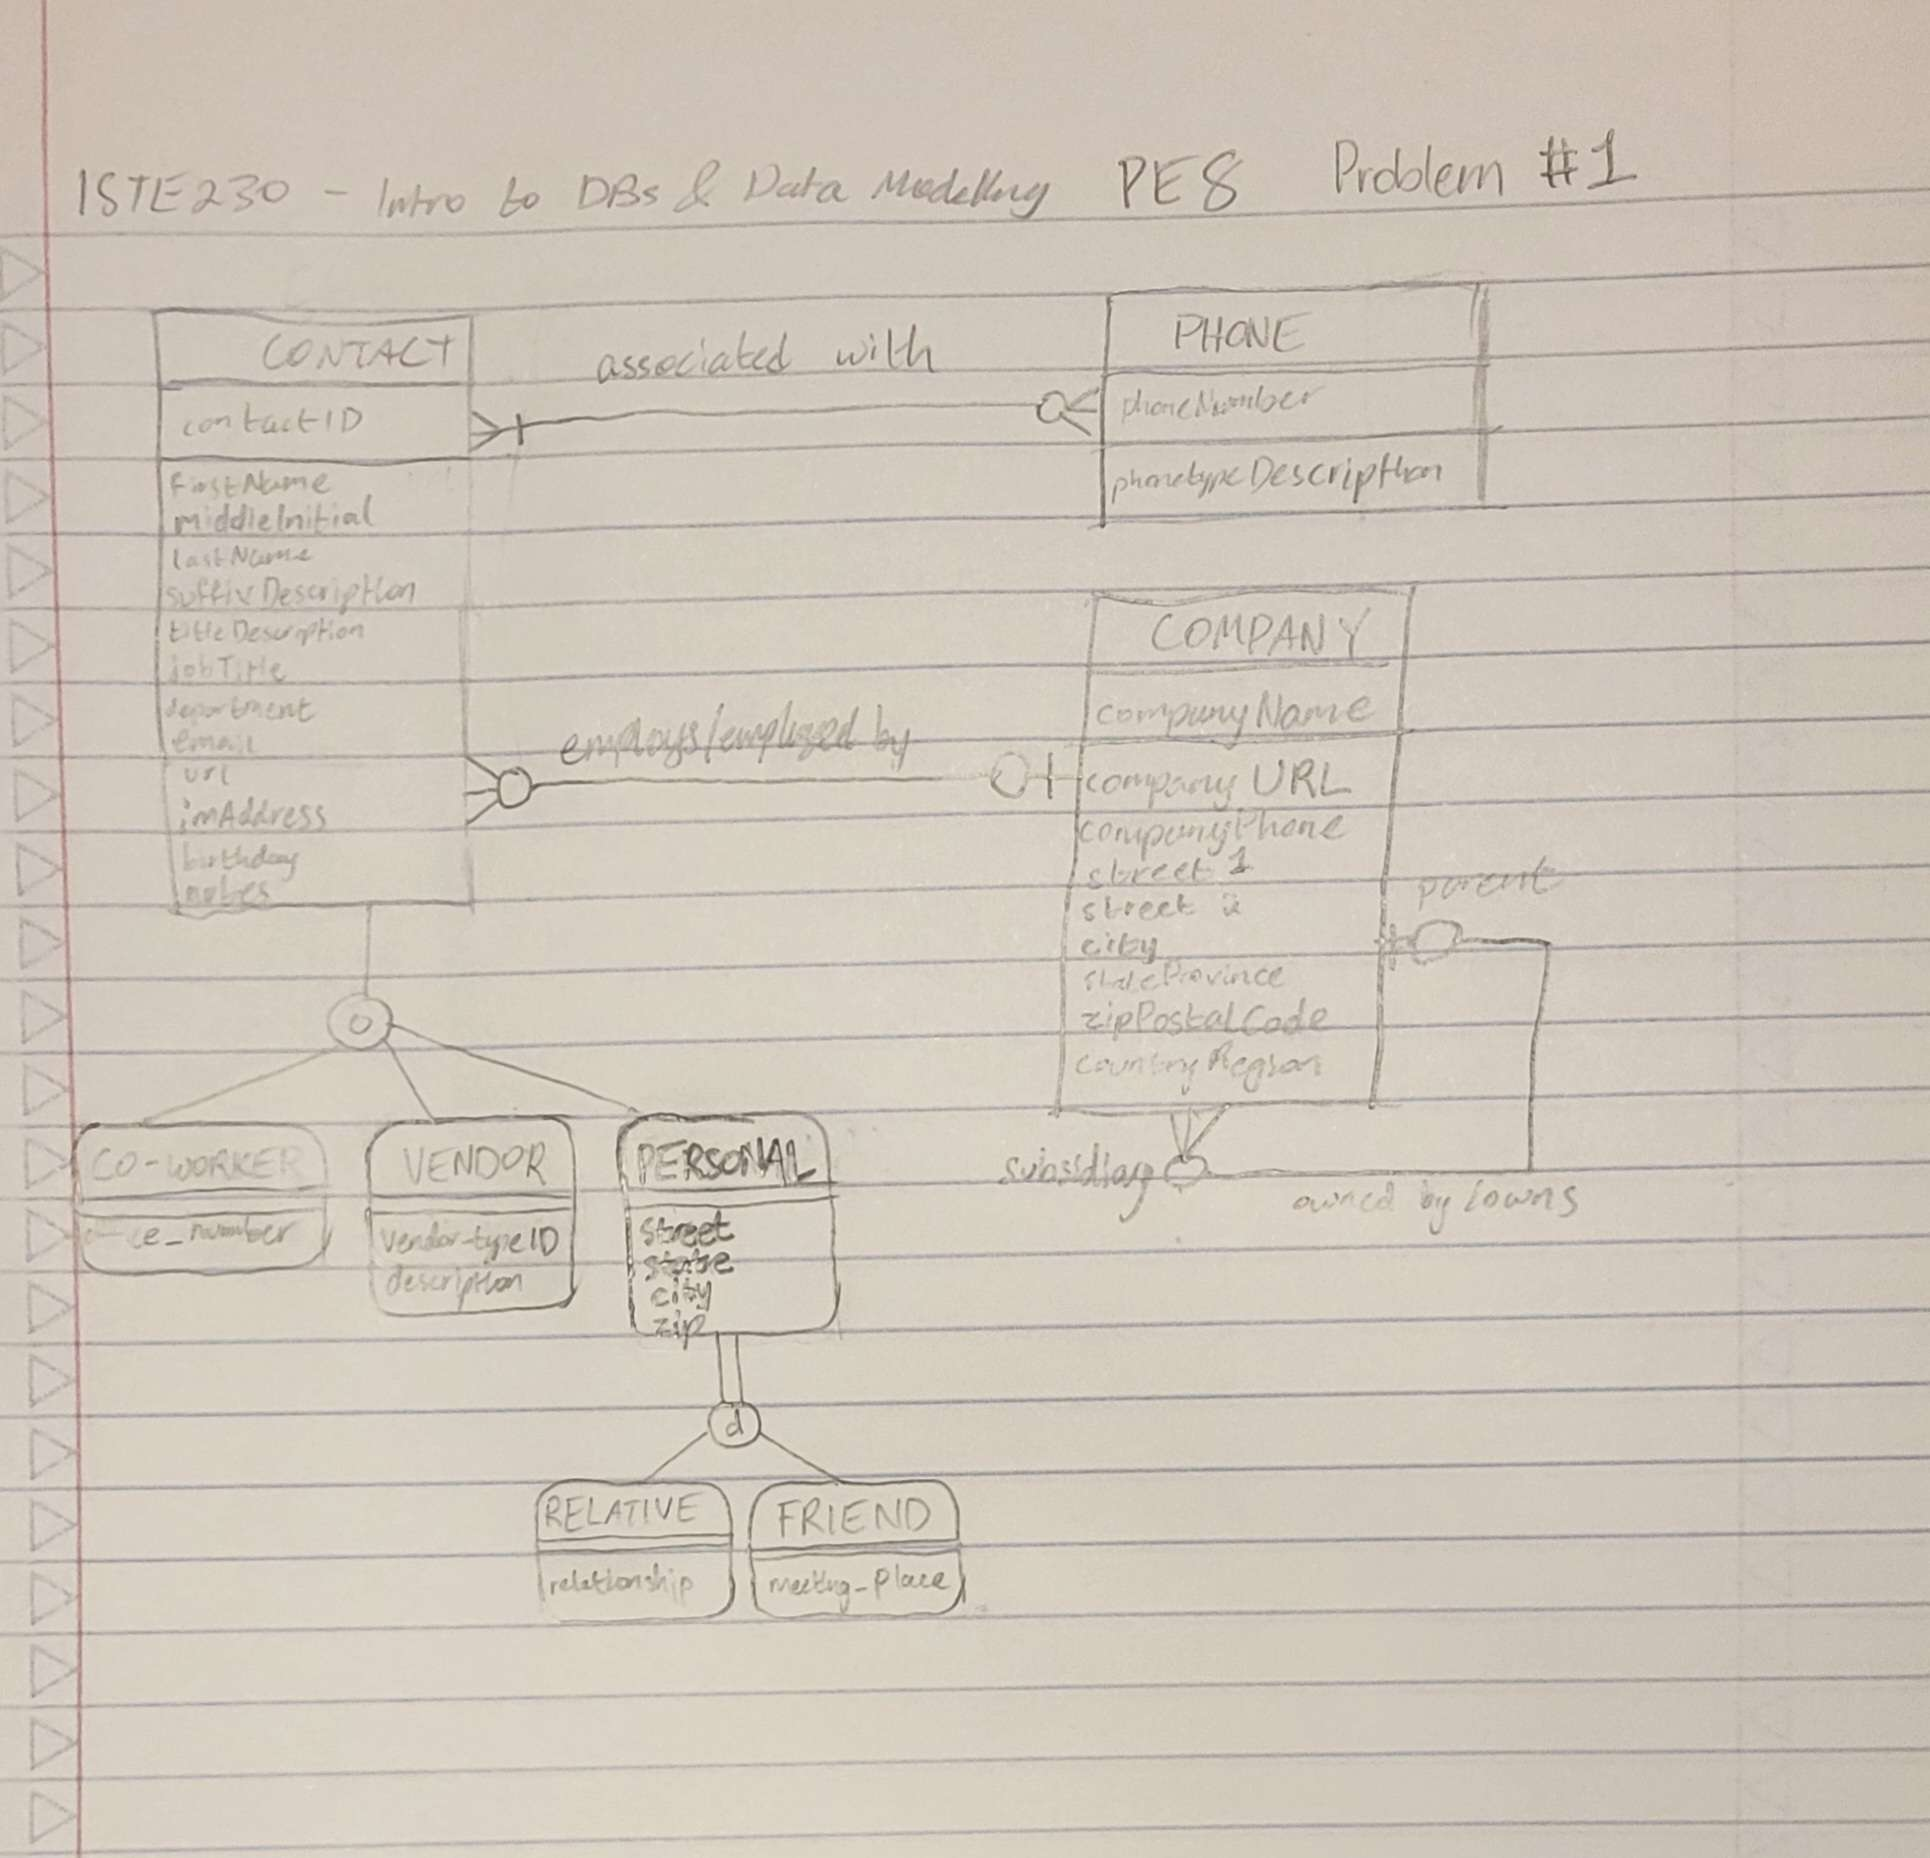 ISTE230 - Intro to DBs & Data Modelling PE8 Problem #1
CONTACT
contactID
firstName
middleInitial
lastName
suffixDescription
titleDescription
jobTitle
department
email
url
imAddress
birthday
notes
associated with
PHONE
phoneNumber
phonetypeDescription
employs/employed by
COMPANY
companyName
company URL
companyPhone
street 1
street 2
city
stateProvince
zipPostalCode
countryRegion
parent
subsidiary
owned by/owns
o
CO-WORKER
VENDOR
vendor-typeID
description
PERSONAL
street
state
city
zip
d
RELATIVE
relationship
FRIEND
meeting_place